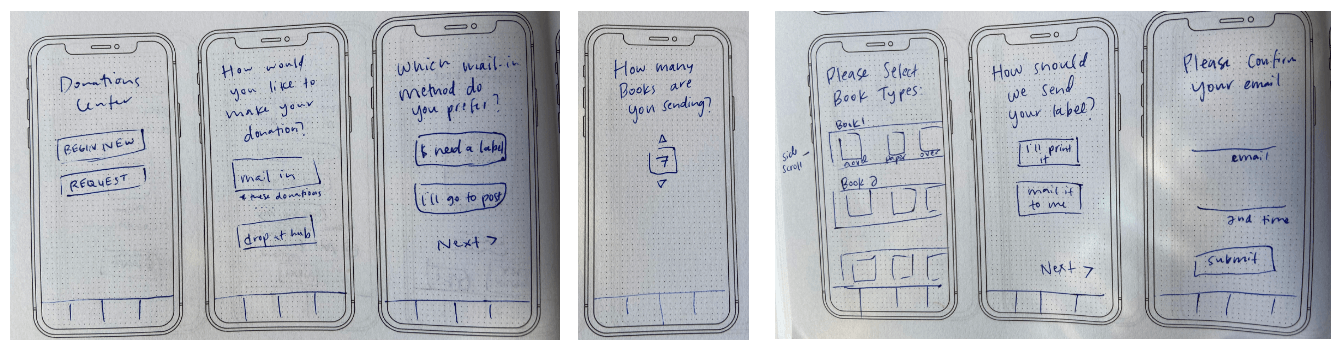 Donations
Center
BEGIN NEW
REQUEST
How would
you like to
make your
donation?
mail in
donations
drop at hub
Which mail-in
method do
you prefer?
I need a label
I'll go to post
Next >
How many
Books are
you sending?
7
Please Select
Book Types:
side
scroll
Book 1
Book 2
How should
we send
your label?
I'll print
it
mail it
to me
Next >
Please Confirm
your email
email
2nd time
submit